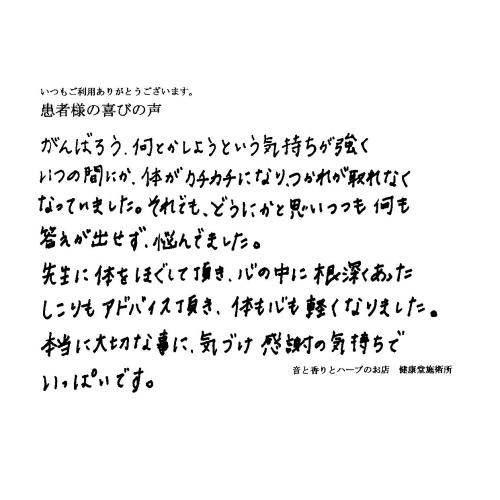 いつもご利用ありがとうございます。
患者様の喜びの声
がんばろう、何とかしようという気持ちが強く
いつの間にか、体がカチカチになり、つかれが取れなく
なっていました。それでも、どうにかと思いつつも何も
答えが出せず、悩んでました。
先生に体をほぐして頂き、心の中に根深くあった
しこりもアドバイス頂き、体も心も軽くなりました。
本当に大切な事に、気づけ感謝の気持ちで
いっぱいです。
音と香りとハーブのお店 健康堂施術所